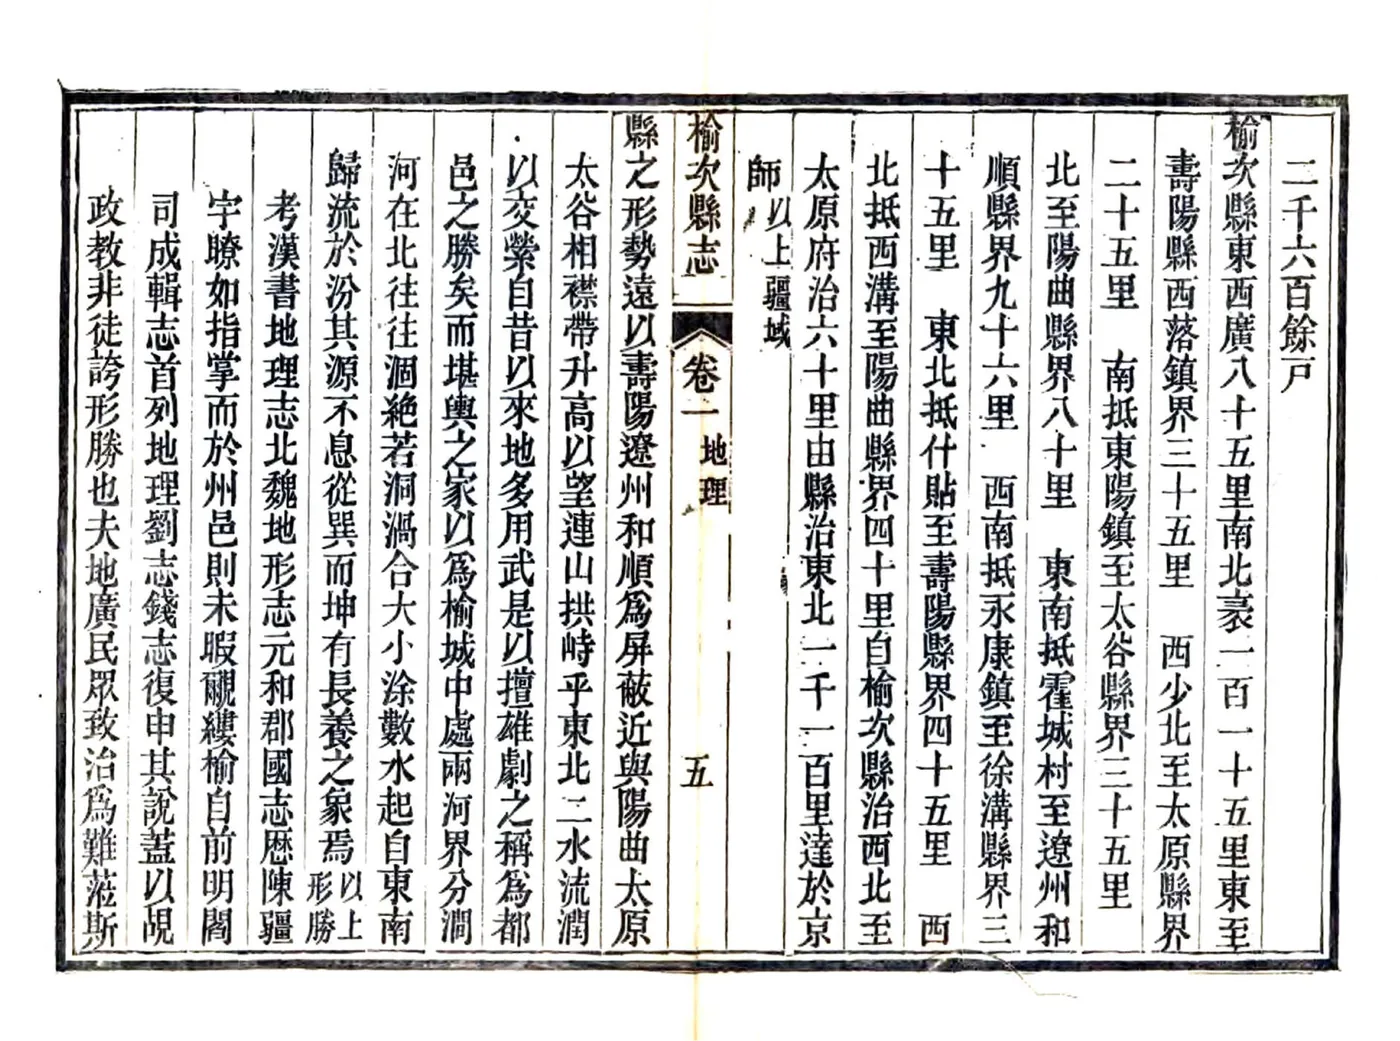 二千六百餘戸
榆次縣東西廣八十五里南北袤一百一十五里東至
壽陽縣西落鎮界三十五里　西少北至太原縣界
二十五里　南抵東陽鎮至太谷縣界三十五里
北至陽曲縣界八十里　東南抵霍城村至遼州和
順縣界九十六里　西南抵永康鎮至徐溝縣界三
十五里　東北抵什貼至壽陽縣界四十五里　西
北抵西溝至陽曲縣界四十里自榆次縣治西北至
太原府治六十里由縣治東北一千一百里達於京
師以上疆域
榆次縣志　卷一　地理　五
縣之形勢遠以壽陽遼州和順爲屏蔽近與陽曲太原
太谷相襟帶升高以望連山拱峙乎東北二水流潤
以交縈自昔以來地多用武是以擅雄劇之稱爲都
邑之勝矣而堪輿之家以爲榆城中處兩河界分澗
河在北往往涸絶若洞渦合大小涂數水起自東南
歸流於汾其源不息從巽而坤有長養之象焉以上形勝
考漢書地理志北魏地形志元和郡國志歷陳疆
宇瞭如指掌而於州邑則未暇覼縷榆自前明閻
司成輯志首列地理劉志錢志復申其說蓋以覘
政教非徒誇形勝也夫地廣民眾致治爲難蒞斯